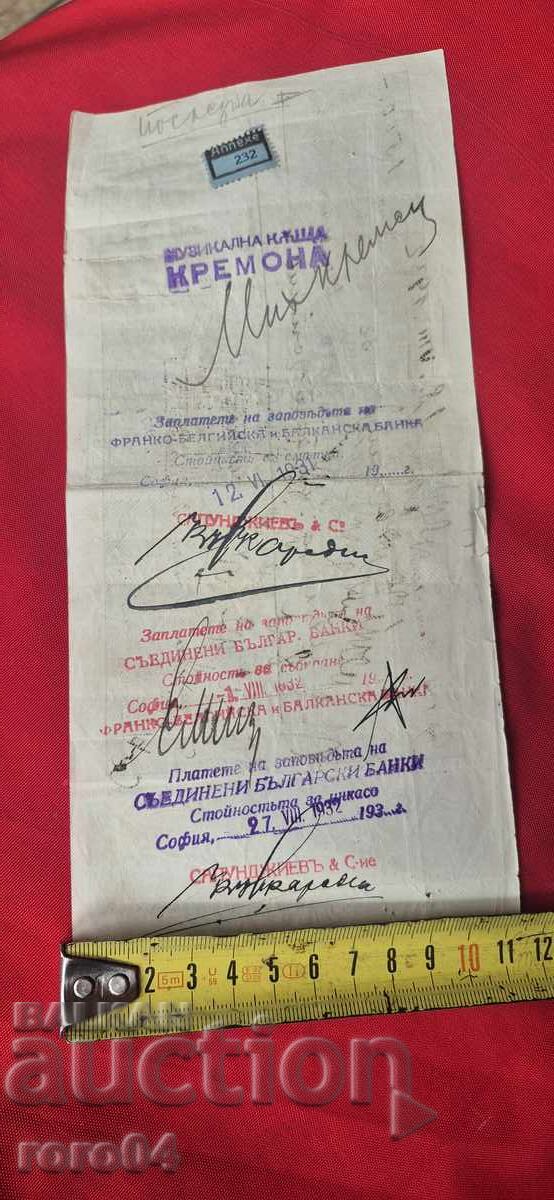 последна
Annexe
232
МУЗИКАЛНА КѪЩА
КРЕМОНА
Заплатете на заповѣдьта на
ФРАНКО-БЕЛГИЙСКА И БАЛКАНСКА БАНКА
Стойность
София, 12. VI. 1931 19......г.
САПУНДЖИЕВЪ & Со
Заплатете на заповѣдьта на
СЪЕДИНЕНИ БЪЛГАР. БАНКИ
Стойность за събиране
София, -1. VIII. 1932 19
ФРАНКО-БЕЛГИЙСКА И БАЛКАНСКА БАНКА
Платете на заповѣдьта на
СЪЕДИНЕНИ БЪЛГАРСКИ БАНКИ
Стойностьта за инкасо
София, 27. VIII. 1932 193...г.
САПУНДЖИЕВЪ & С-ие
2 5m 3 4 5 6 7 8 9 10 11 12
BALKAN
auction
roro04